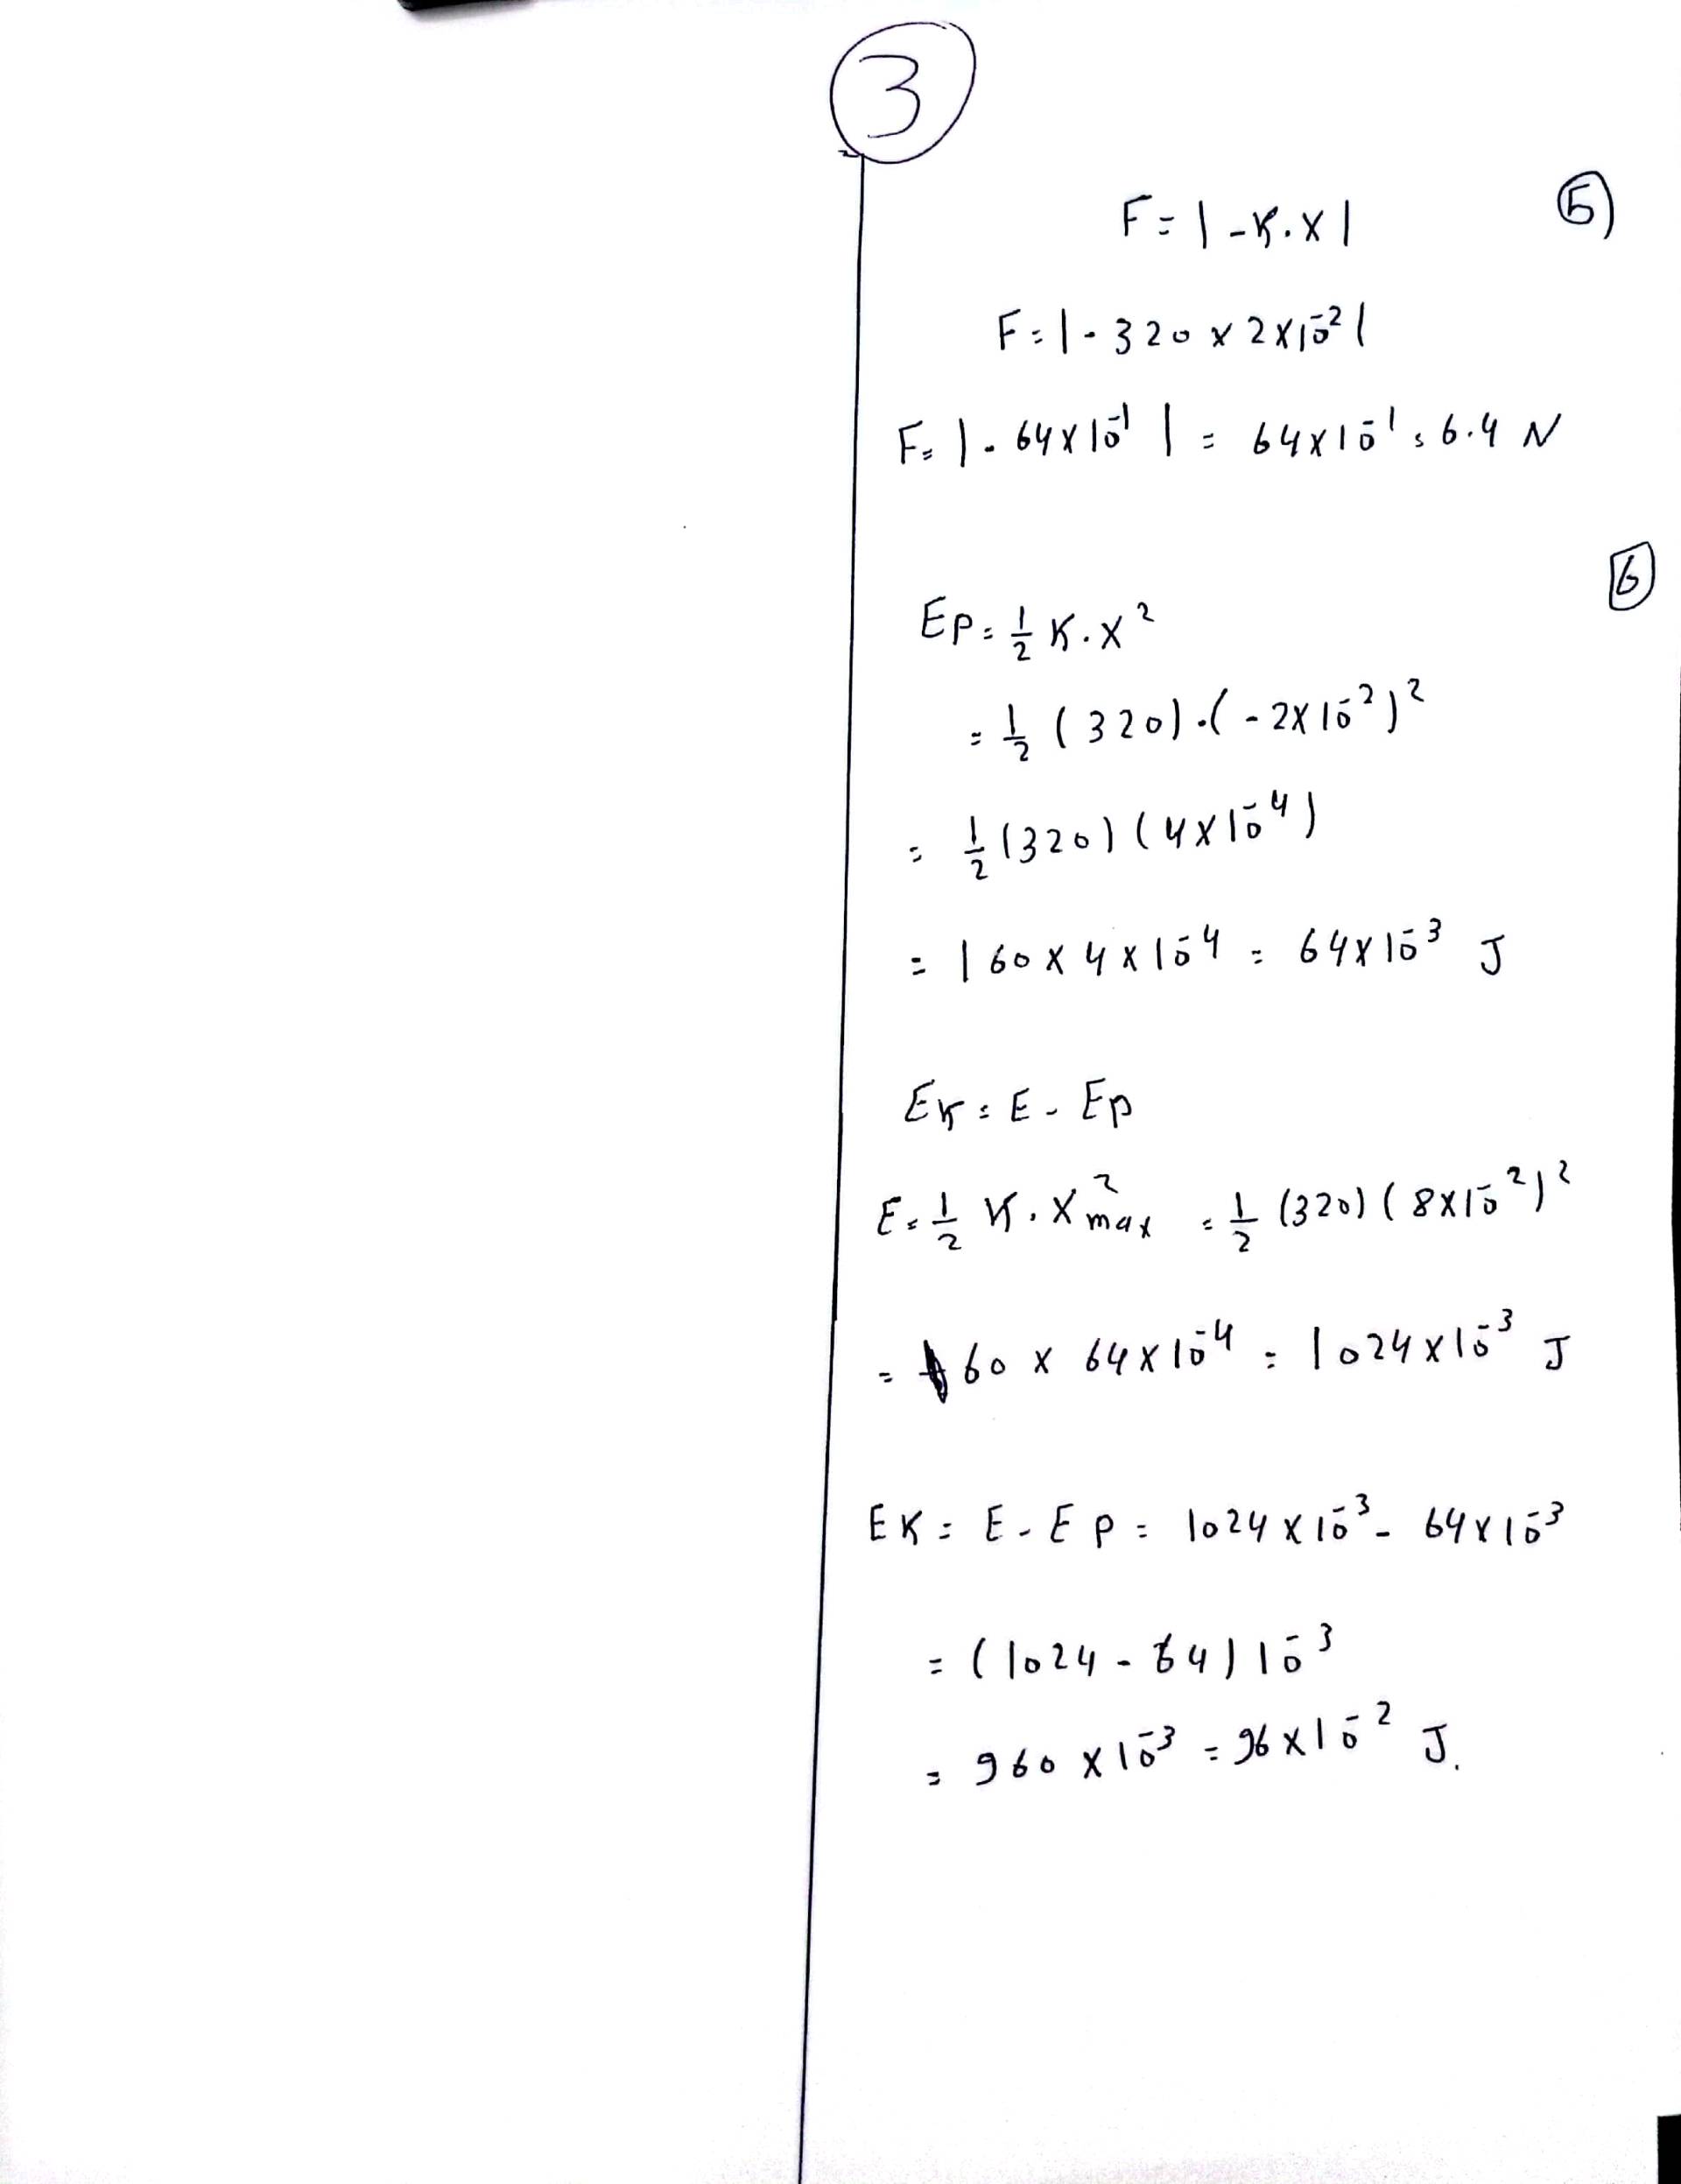 3
5
F = | -K.X |
F = | - 320 x 2x10⁻² |
F = | - 64x10⁻¹ | = 64x10⁻¹ = 6.4 N
6
EP = 1/2 K.X²
= 1/2 (320).(-2x10⁻²)²
= 1/2 (320) (4x10⁻⁴)
= 160 x 4 x 10⁻⁴ = 64x10⁻³ J
EK = E - EP
E = 1/2 K.X²max = 1/2 (320) (8x10⁻²)²
= 160 x 64x10⁻⁴ = 1024x10⁻³ J
EK = E - EP = 1024x10⁻³ - 64x10⁻³
= (1024 - 64) 10⁻³
= 960 x10⁻³ = 96x10⁻² J.